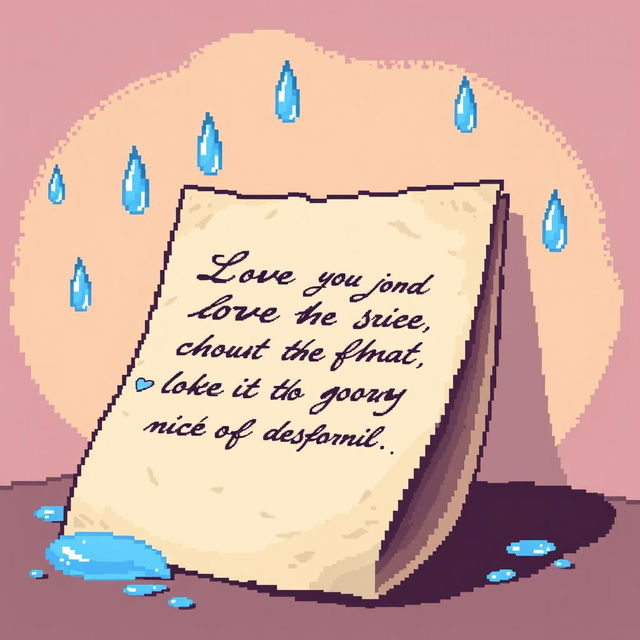 Love you jond
love the sriee,
choust the fhnat,
loke it tło goowy
nicé of desfornil..